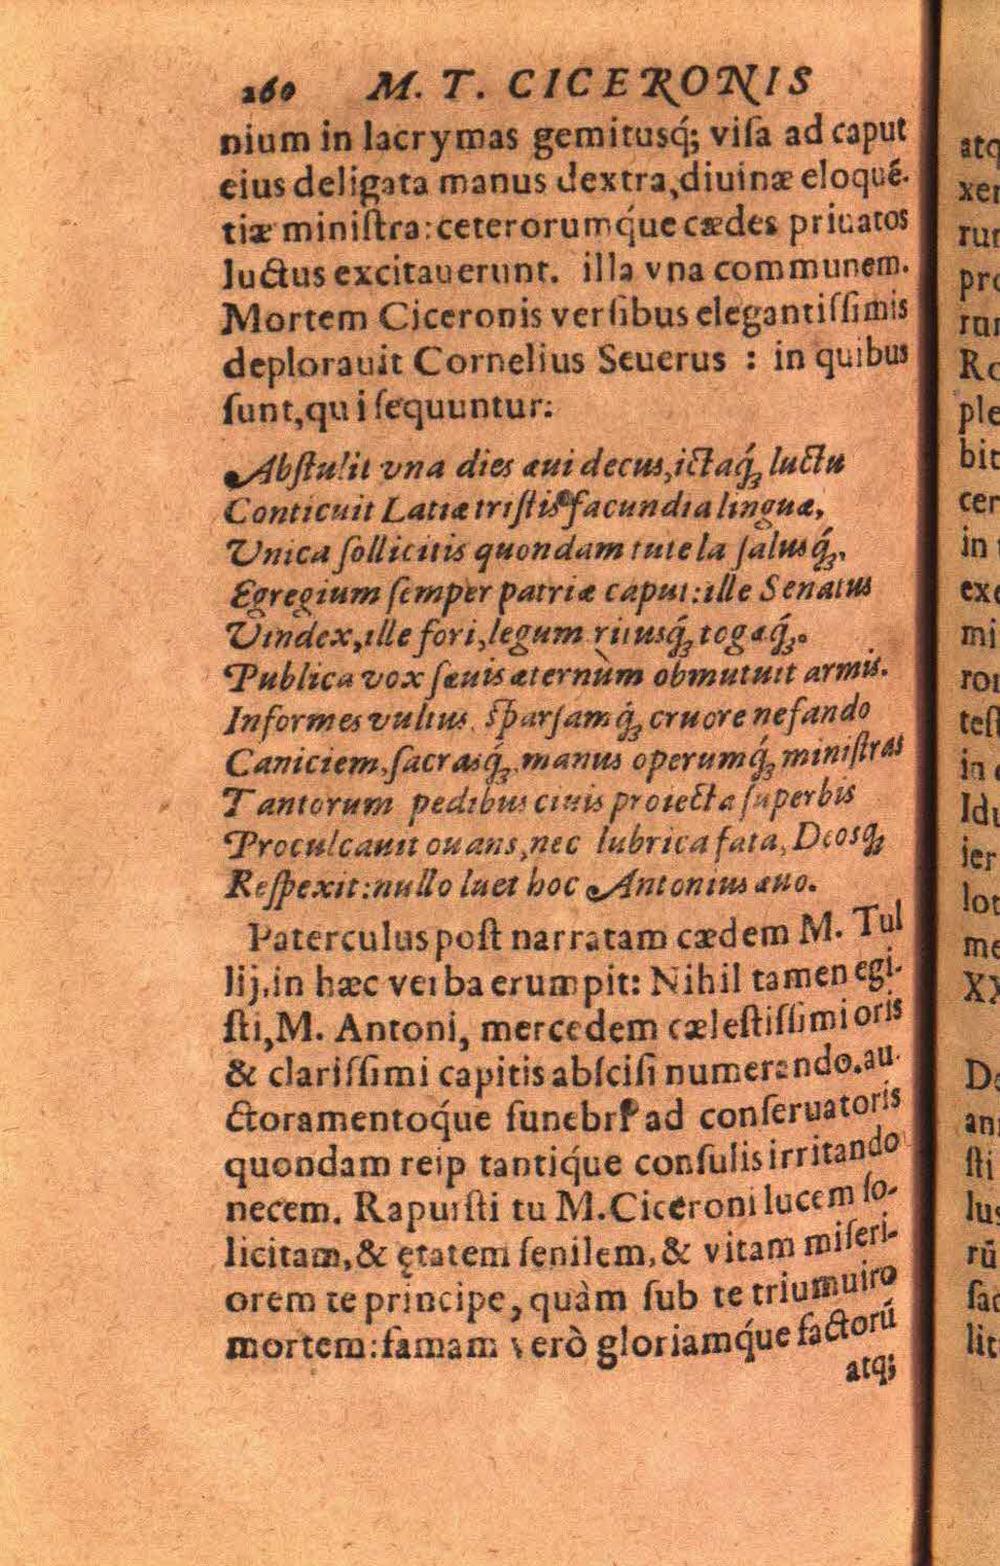 260 M. T. CICERONIS
nium in lacrymas gemitusq́; viſa ad caput
eius deligata manus dextra, diuinæ eloquē-
tiæ miniſtra: ceterorumq́ue cædes priuatos
luctus excitauerunt. illa vna communem.
Mortem Ciceronis verſibus elegantiſſimis
deplorauit Cornelius Seuerus : in quibus
ſunt, qui ſequuntur:
Abſtulit vna dies æui decus, ictaq́; luctu
Conticuit Latiæ triſtis facundia linguæ,
Unica ſollicitis quondam tutela ſalusq́;,
Egregium ſemper patriæ caput: ille Senatus
Uindex, ille fori, legum ritusq́; togæq́;.
Publica vox ſæuis æternùm obmutuit armis.
Informes vultus, ſparſamq́; cruore nefando
Caniciem, ſacrasq́;, manus operumq́; miniſtras
Tantorum pedibus ciuis proiecta ſuperbis
Proculcauit ouans, nec lubrica fata, Deosq;
Reſpexit: nullo luet hoc Antonius æuo.
Paterculus poſt narratam cædem M. Tul
lij, in hæc verba erumpit: Nihil tamen egi-
ſti, M. Antoni, mercedem cæleſtiſſimi oris
& clariſſimi capitis abſciſi numerando. au-
ctoramentoq́ue funebri ad conſeruatoris
quondam reip tantiq́ue conſulis irritando
necem. Rapuiſti tu M. Ciceroni lucem ſo-
licitam, & ętatem ſenilem, & vitam miſeri-
orem te principe, quàm ſub te triumuiro
mortem: famam verò gloriamq́ue factorū
atq;
atq
xer
rur
pro
rar
Re
ple
bit
cer
in
exc
mi
ror
teſt
in
Idu
ier
lot
me
XX
De
ani
ſti
lus
rū
ſac
lit